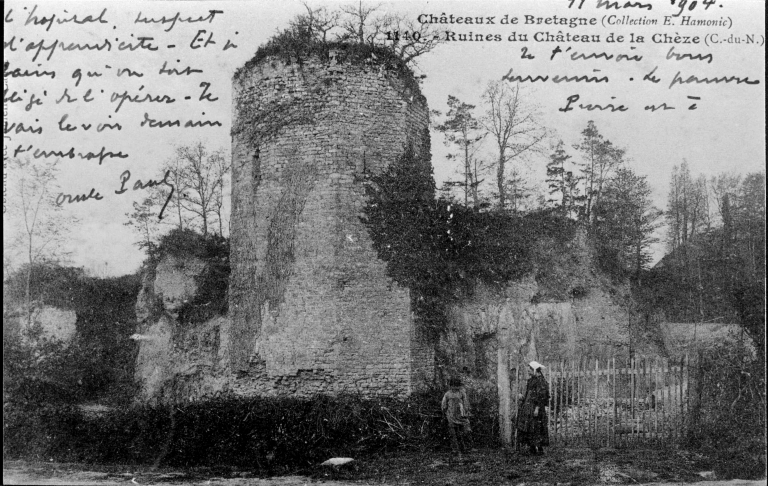 11 mars 1904.
Châteaux de Bretagne (Collection E. Hamonic)
1140. - Ruines du Château de la Chèze (C.-du-N.)
Je t'envoie bons
souvenirs. Le pauvre
Pierre est à
l'hôpital, suspect
d'appendicite - Et à
qu'on soit
obligé de l'opérer. Je
vais le voir demain
t'embrasse
oncle Paul